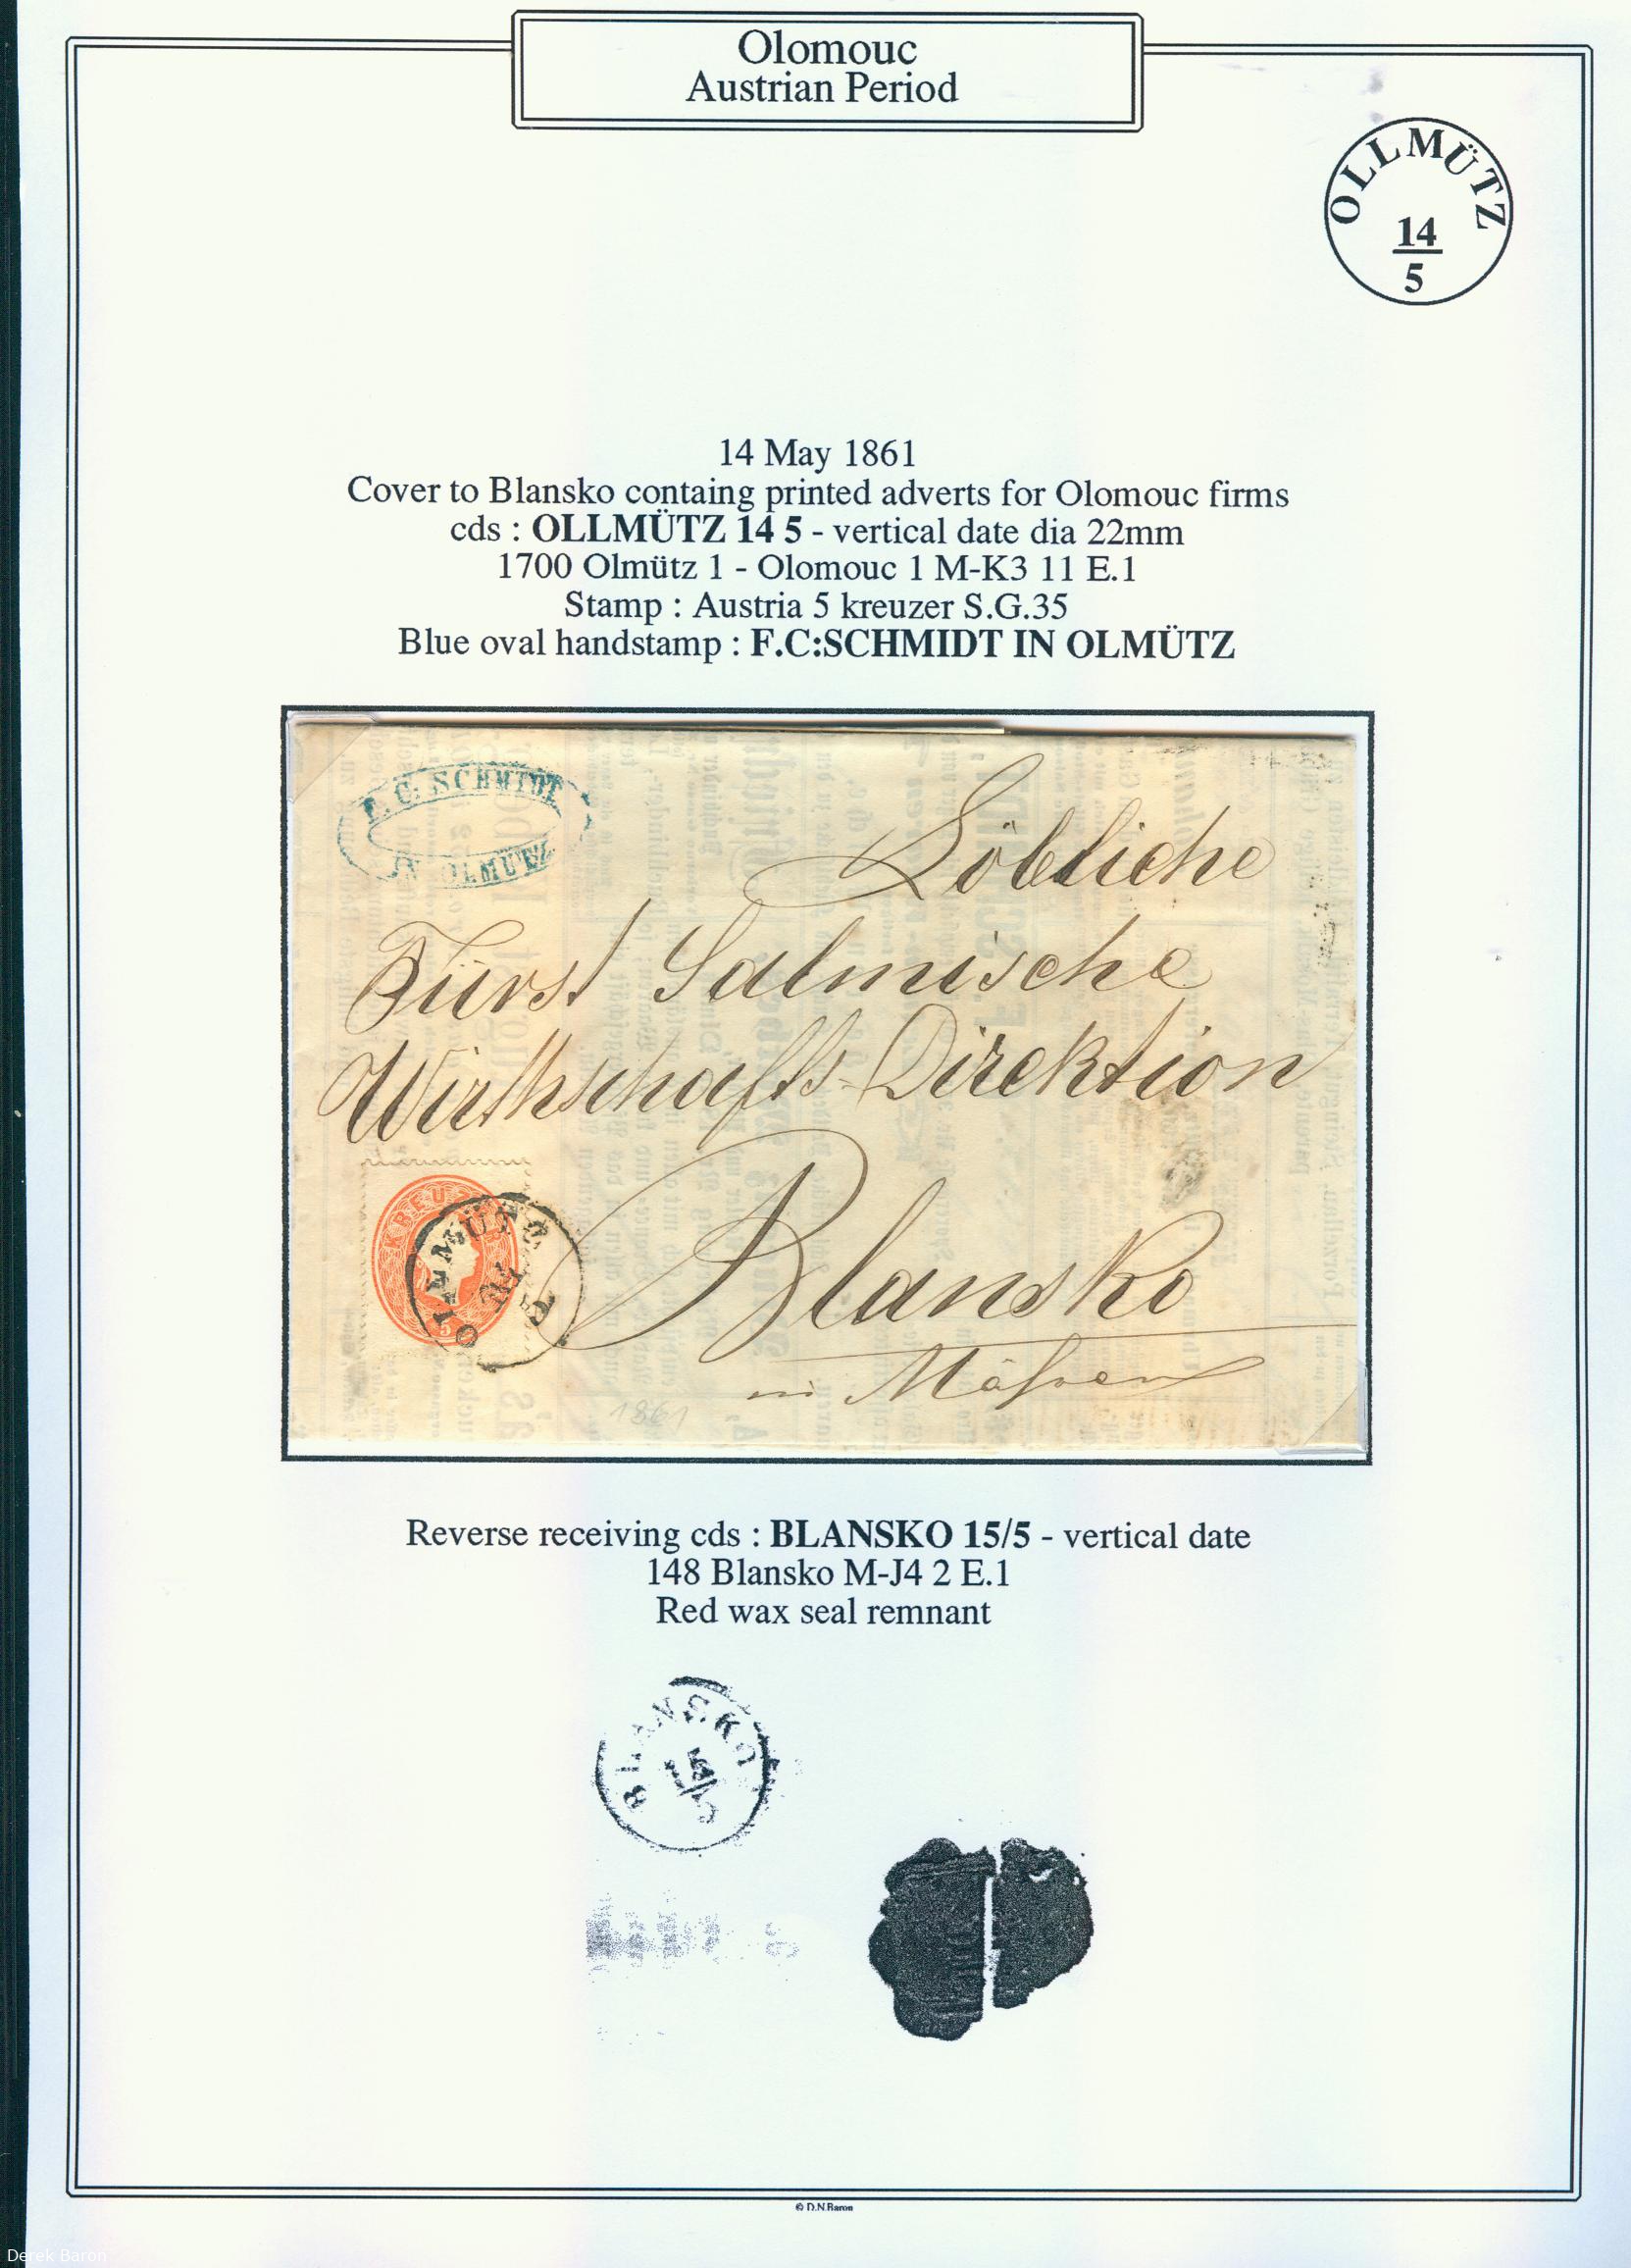 Olomouc
Austrian Period
OLLMÜTZ
14
5
14 May 1861
Cover to Blansko containg printed adverts for Olomouc firms
cds : OLLMÜTZ 14 5 - vertical date dia 22mm
1700 Olmütz 1 - Olomouc 1 M-K3 11 E.1
Stamp : Austria 5 kreuzer S.G.35
Blue oval handstamp : F.C:SCHMIDT IN OLMÜTZ
F. C: SCHMIDT
IN OLMUETZ
Löbliche
Fürst Salmische
Wirthschafts-Direktion
KREU
5
OLLMÜTZ
14
5
Blansko
in Mähren
1861
Reverse receiving cds : BLANSKO 15/5 - vertical date
148 Blansko M-J4 2 E.1
Red wax seal remnant
BLANSKO
15
5
© D.N.Baron
Derek Baron